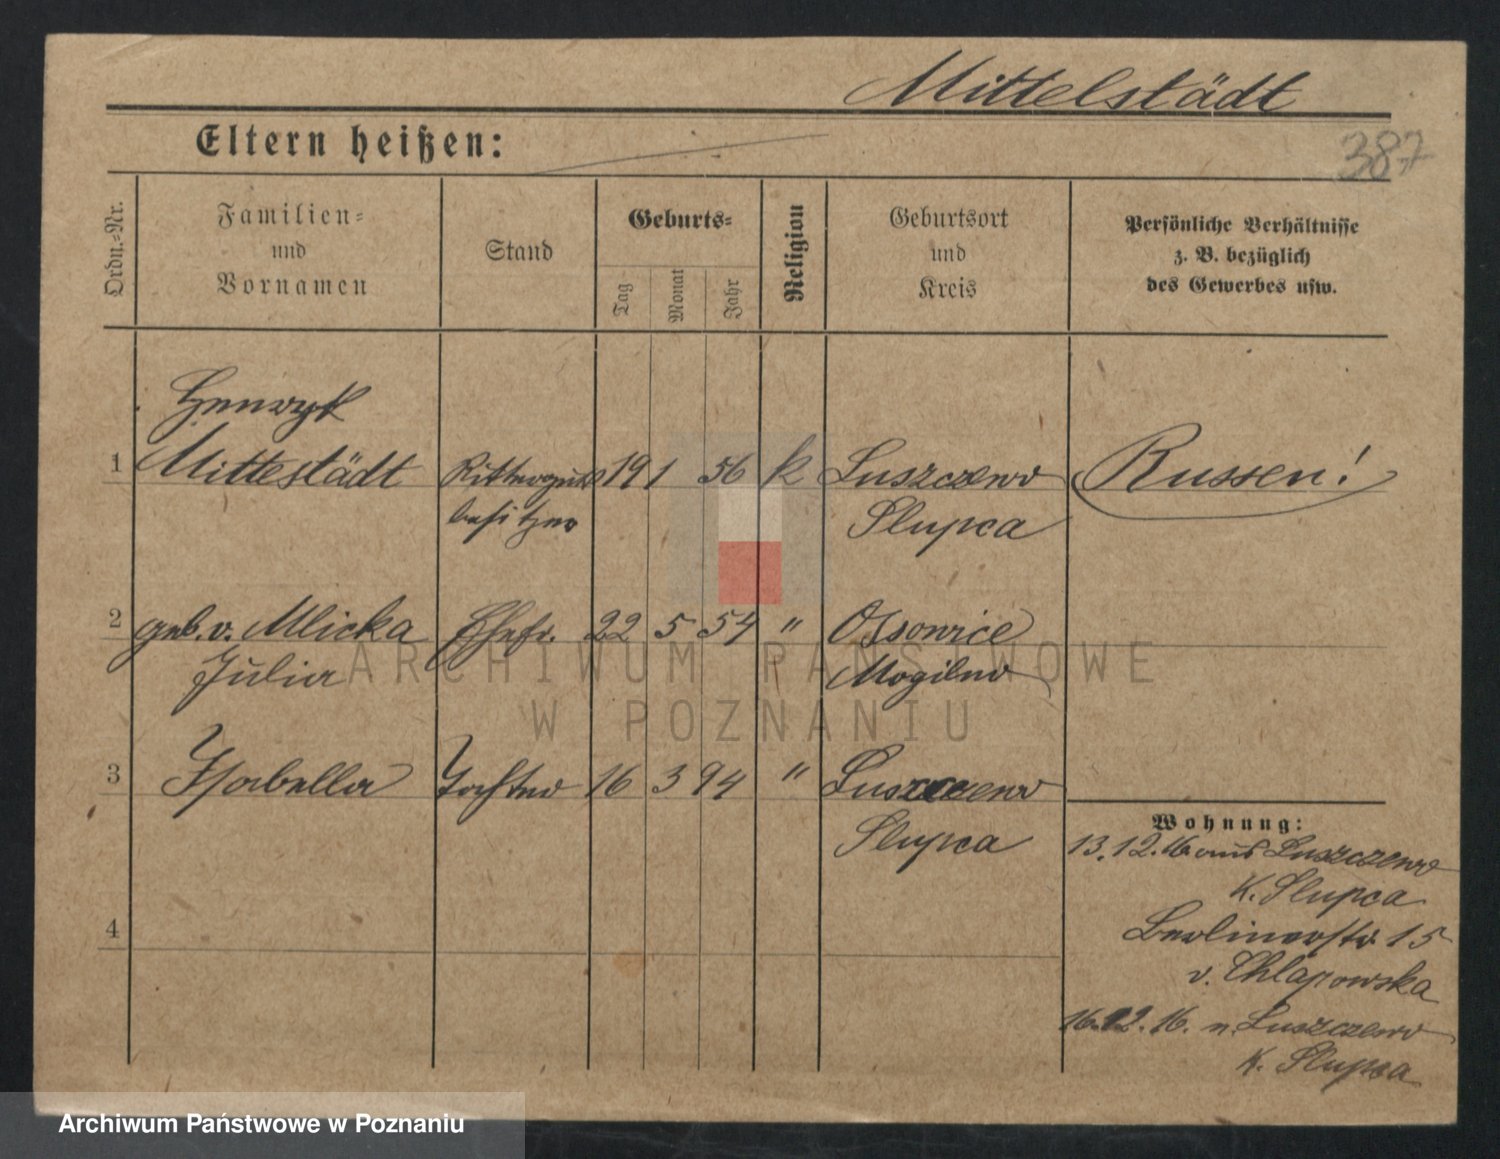 Mittelstädt
Eltern heißen:
387
Ordn.-Nr.
Familien-
und
Vornamen
Stand
Geburts-
Tag
Monat
Jahr
Religion
Geburtsort
und
Kreis
Persönliche Verhältnisse
z. B. bezüglich
des Gewerbes usw.
Henryk
1 Mittestädt Ritterguts 19 1 56 k Luszczewo Russen!
besitzer Slupca
2 geb. v. Mlicka Ehefr. 22 5 54 " Ossowice
Julia Mogilno
3 Isabella Tochter 16 3 94 " Luszczewo
Slupca
Wohnung:
13.12.16 aus Luszczewo
K. Slupca
4 Berlinerstr 15
v. Chlapowska
16.12.16. n. Luszczewo
K. Slupca
ARCHIWUM PAŃSTWOWE
W POZNANIU
Archiwum Państwowe w Poznaniu